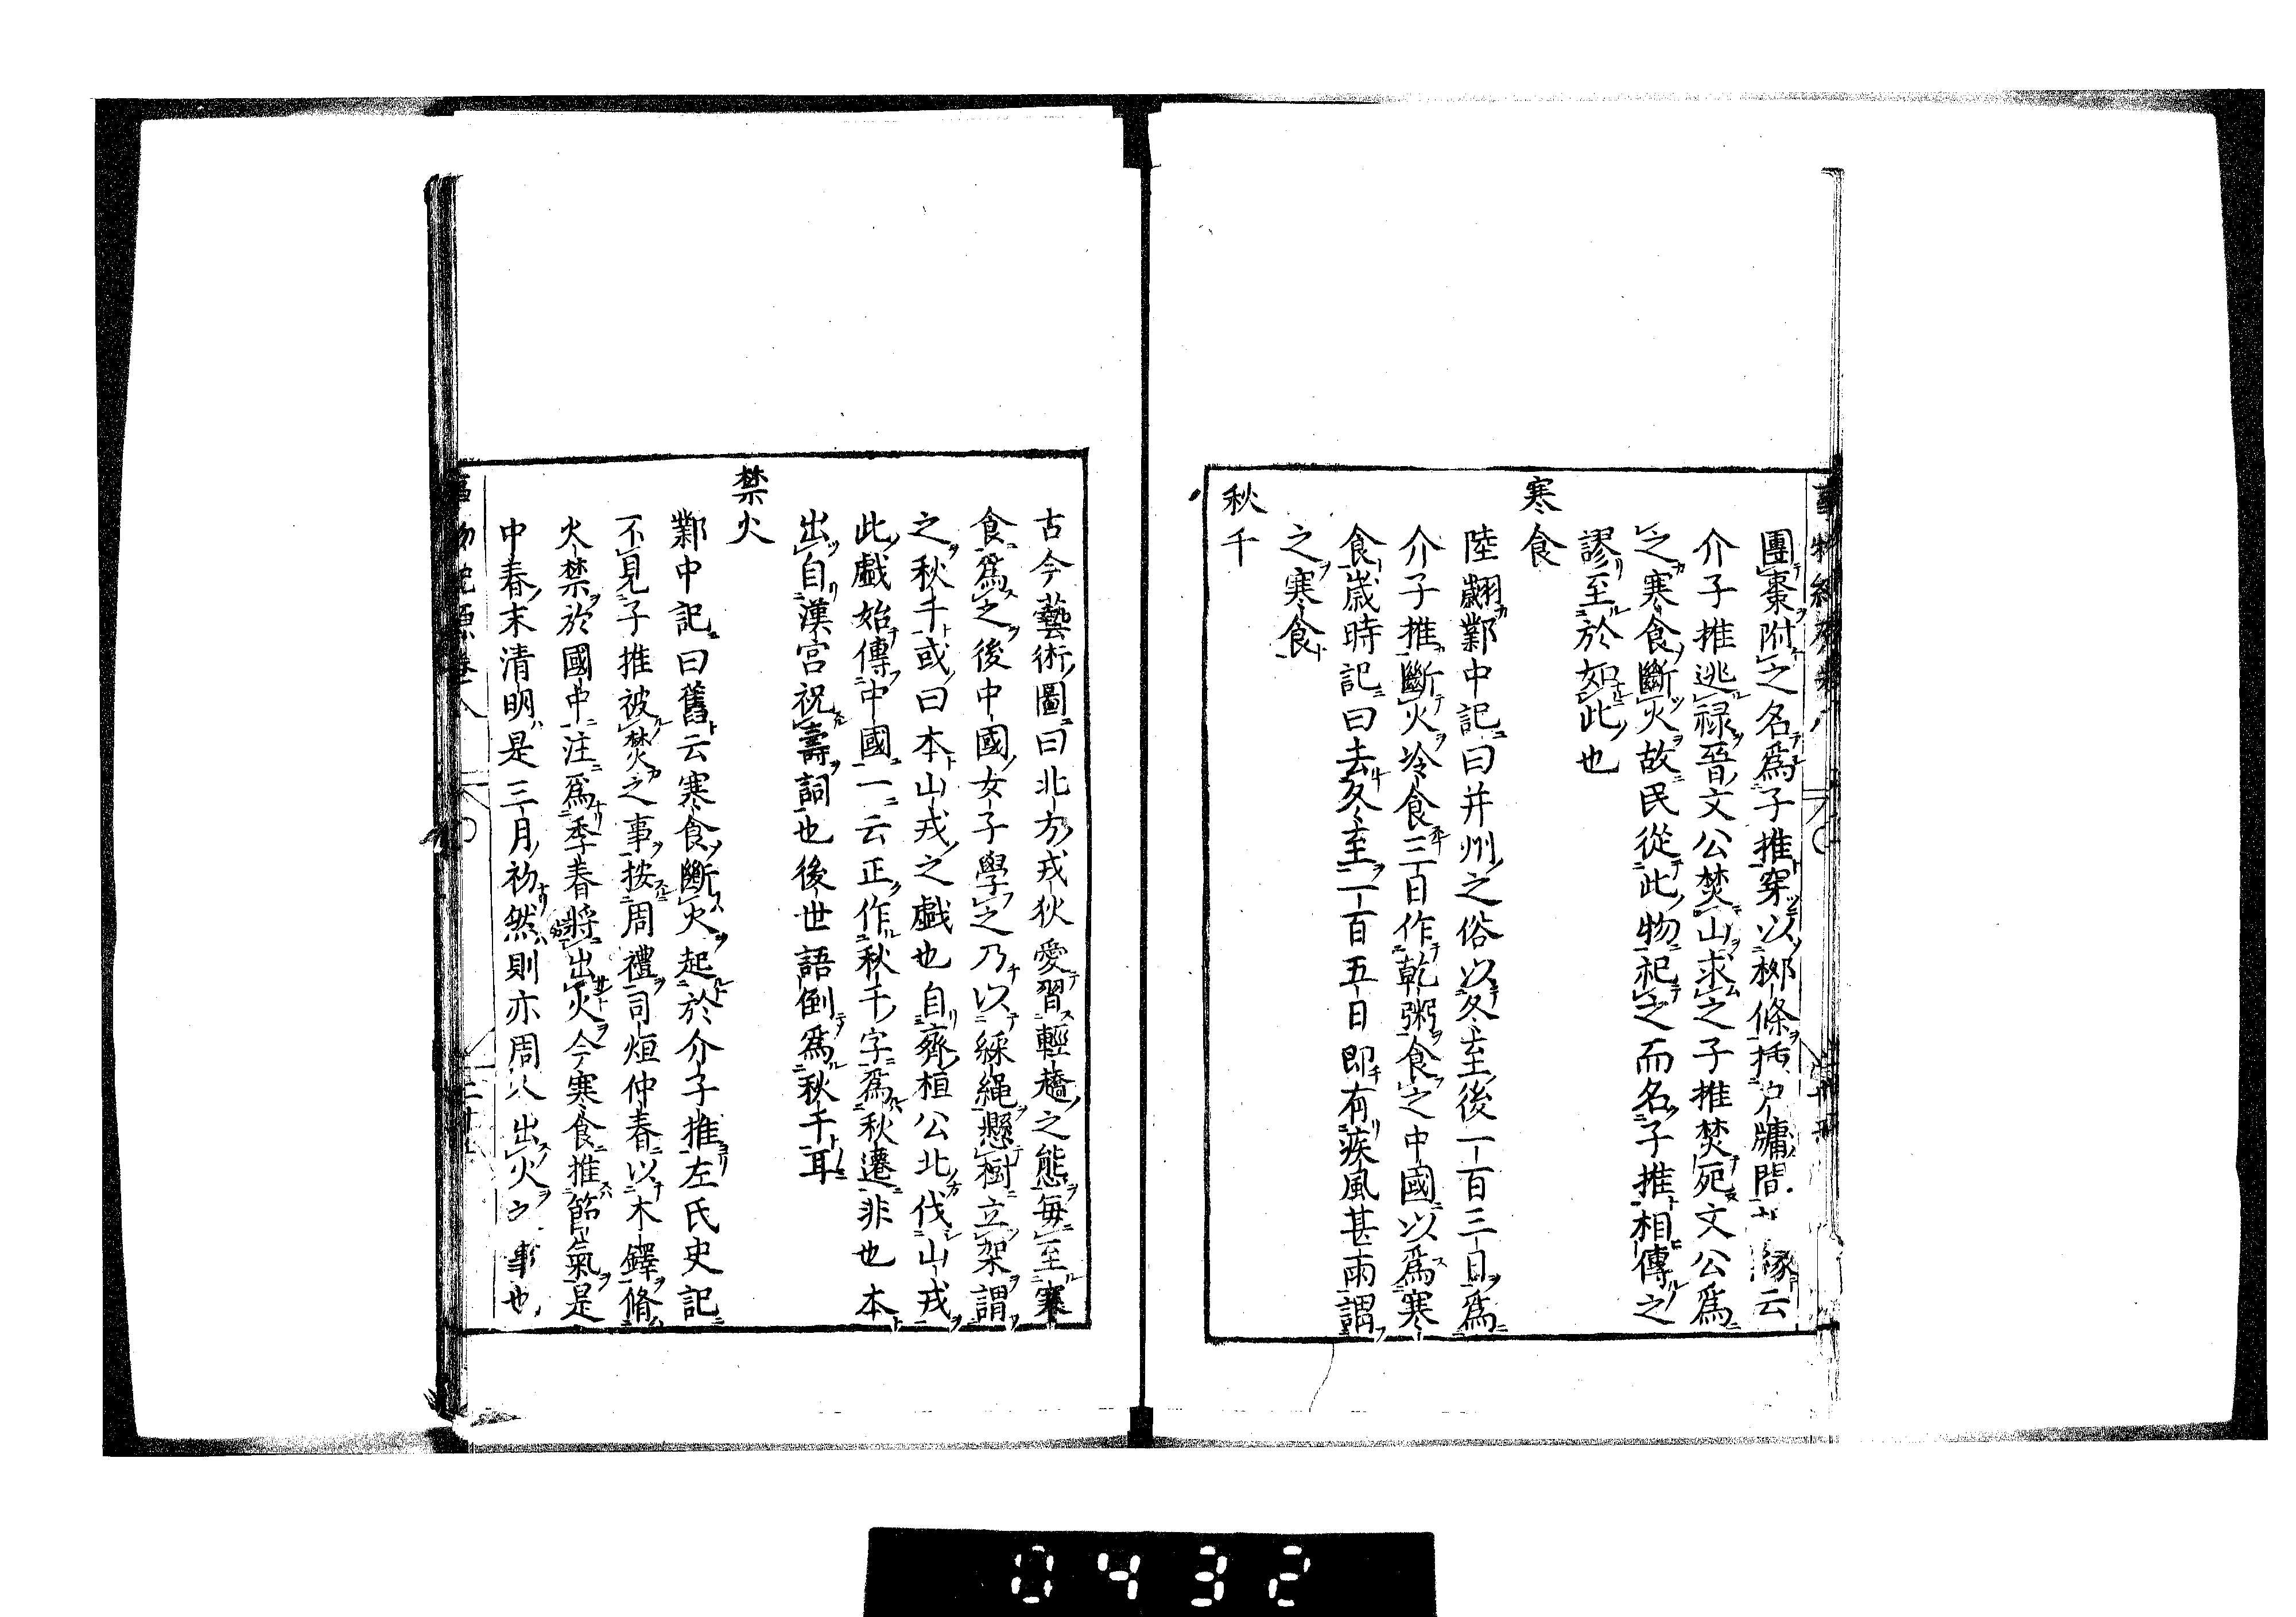 團棗附之名爲子推穿以柳條插戸牖間 緣云
介子推逃祿晉文公焚山求之子推焚死文公爲
之寒食斷火故民從此物祀之而名子推相傳之
謬至於如此也
寒食
陸翽鄴中記曰并州之俗以冬至後一百三日爲
介子推斷火冷食三日作乾粥食之中國以爲寒
食歲時記曰去冬至一百五日即有疾風甚雨謂
之寒食
秋千
古今藝術圖曰北方戎狄愛習輕趫之態每至寒
食爲之後中國女子學之乃以綵繩懸樹立架謂
之秋千或曰本山戎之戲也自齊桓公北伐山戎
此戲始傳中國一云正作秋千字爲秋遷非也本
出自漢宮祝壽詞也後世語倒爲秋千耳
禁火
鄴中記曰舊云寒食斷火起於介子推左氏史記
不見子推被焚之事按周禮司烜仲春以木鐸脩
火禁於國中注爲季春將出火今寒食推節氣是
中春末清明是三月初然則亦周人出火之事也
0432